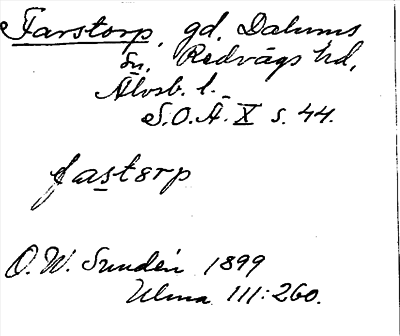 Farstorp, gd, Dalums
sn, Redvägs hd,
Älvsb. l.
S.O.Ä. X s. 44.
fastorp
O. W. Sundén 1899
Ulma 111:260.